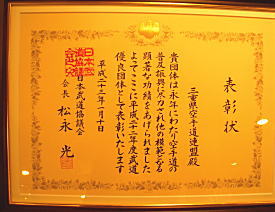 表彰状
三重県空手道連盟殿
貴団体は永年にわたり空手道の
普及振興に尽力され他の模範となる
顕著な功績をあげられました
よってここに平成二十二年度武道
優良団体として表彰いたします
平成二十三年一月十日
日本武道協議会
会長 松永 光